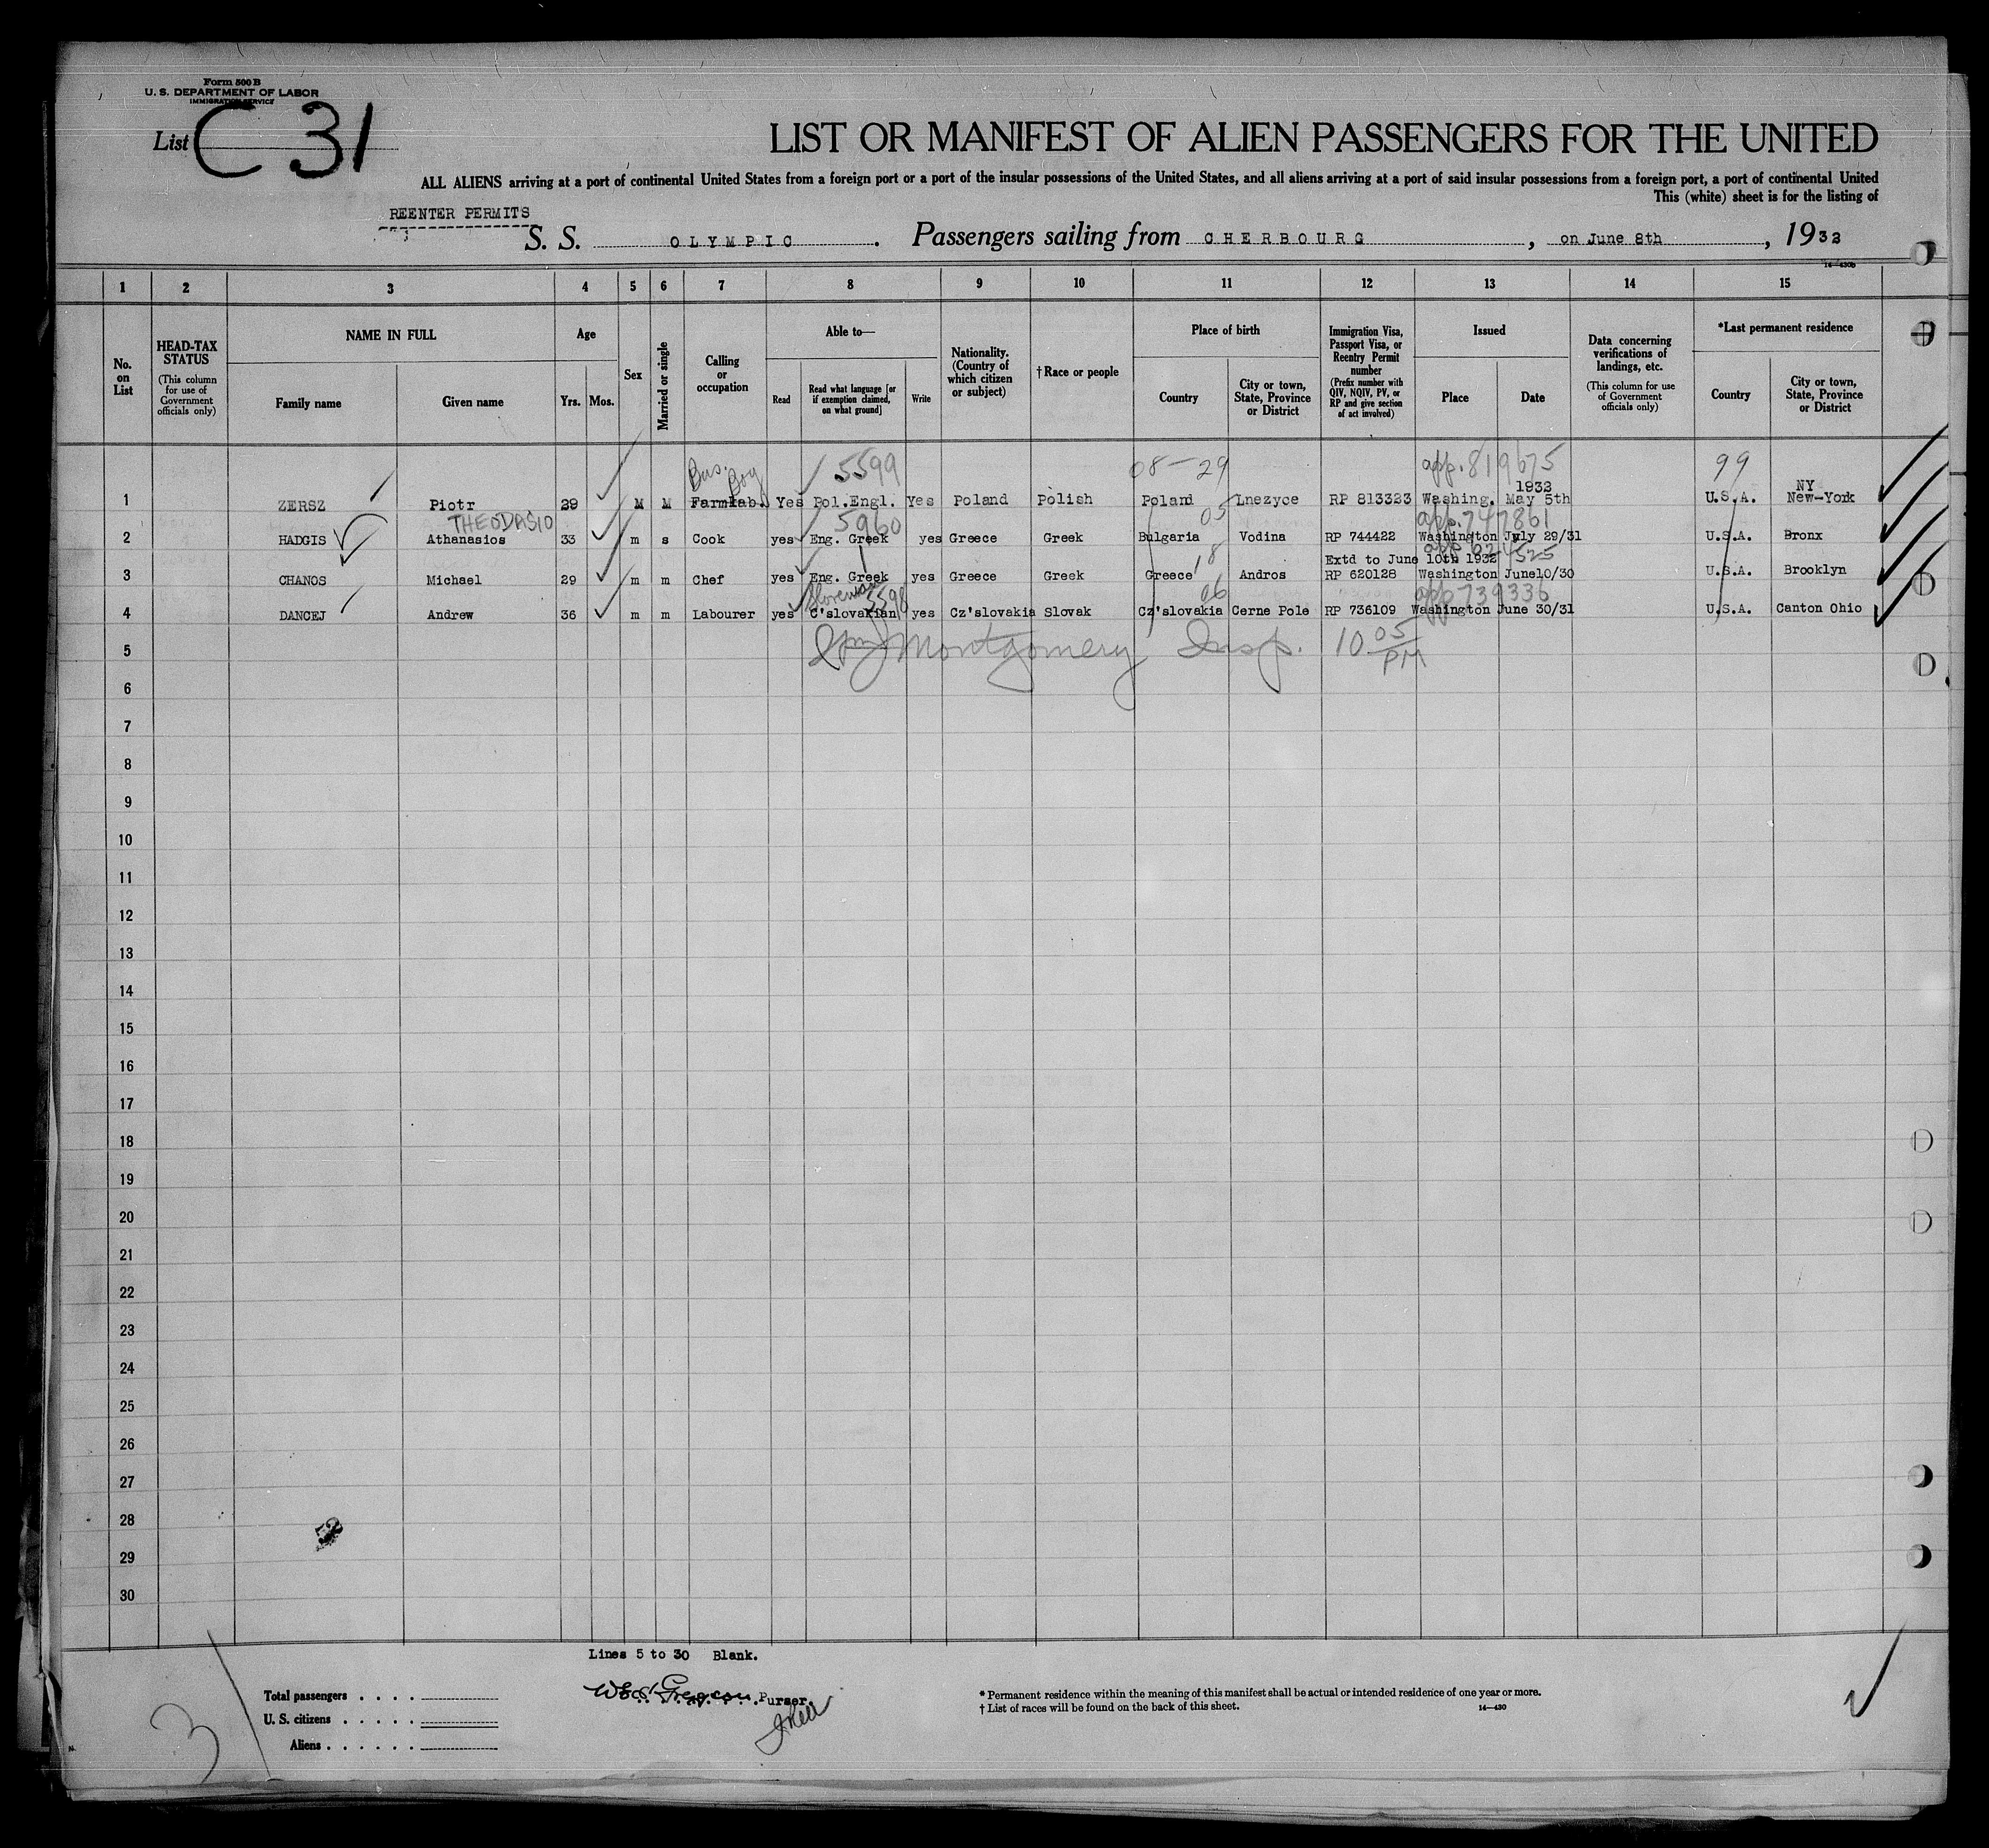 Form 500 B
U. S. DEPARTMENT OF LABOR
IMMIGRATION SERVICE
List C 31
LIST OR MANIFEST OF ALIEN PASSENGERS FOR THE UNITED
ALL ALIENS arriving at a port of continental United States from a foreign port or a port of the insular possessions of the United States, and all aliens arriving at a port of said insular possessions from a foreign port, a port of continental United
This (white) sheet is for the listing of
REENTER PERMITS
S. S. OLYMPIC . Passengers sailing from CHERBOURG , on June 8th , 1932
14—430b
1 2 3 4 5 6 7 8 9 10 11 12 13 14 15
No. on List
HEAD-TAX STATUS (This column for use of Government officials only)
NAME IN FULL
Family name
Given name
Age
Yrs. Mos.
Sex
Married or single
Calling or occupation
Able to—
Read
Read what language [or if exemption claimed, on what ground]
Write
Nationality. (Country of which citizen or subject)
† Race or people
Place of birth
Country
City or town, State, Province or District
Immigration Visa, Passport Visa, or Reentry Permit number (Prefix number with QIV, NQIV, PV, or RP and give section of act involved)
Issued
Place
Date
Data concerning verifications of landings, etc. (This column for use of Government officials only)
*Last permanent residence
Country
City or town, State, Province or District
Bus. Boy 5599 08-29 app. 819675 99
1932 NY
1 ZERSZ Piotr 29 M M Farmlab. Yes Pol.Engl. Yes Poland Polish Poland Lnezyce RP 813323 Washing. May 5th U.S.A. New-York
THEODASIO 5960 05 app. 747861
2 HADGIS Athanasios 33 m s Cook yes Eng. Greek yes Greece Greek Bulgaria Vodina RP 744422 Washington July 29/31 U.S.A. Bronx
18 Extd to June 10th 1932
3 CHANOS Michael 29 m m Chef yes Eng. Greek yes Greece Greek Greece Andros RP 620128 Washington June10/30 U.S.A. Brooklyn
Slovenian 5598 06 app 739336
4 DANCEJ Andrew 36 m m Labourer yes C'slovakian yes Cz'slovakia Slovak Cz'slovakia Cerne Pole RP 736109 Washington June 30/31 U.S.A. Canton Ohio
5 Montgomery Insp. 10 05 PM
6
7
8
9
10
11
12
13
14
15
16
17
18
19
20
21
22
23
24
25
26
27
28
29
30
Lines 5 to 30 Blank.
Purser.
Total passengers . . . .
U. S. citizens . . . . .
Aliens . . . . . .
3
* Permanent residence within the meaning of this manifest shall be actual or intended residence of one year or more.
† List of races will be found on the back of this sheet.
14—430